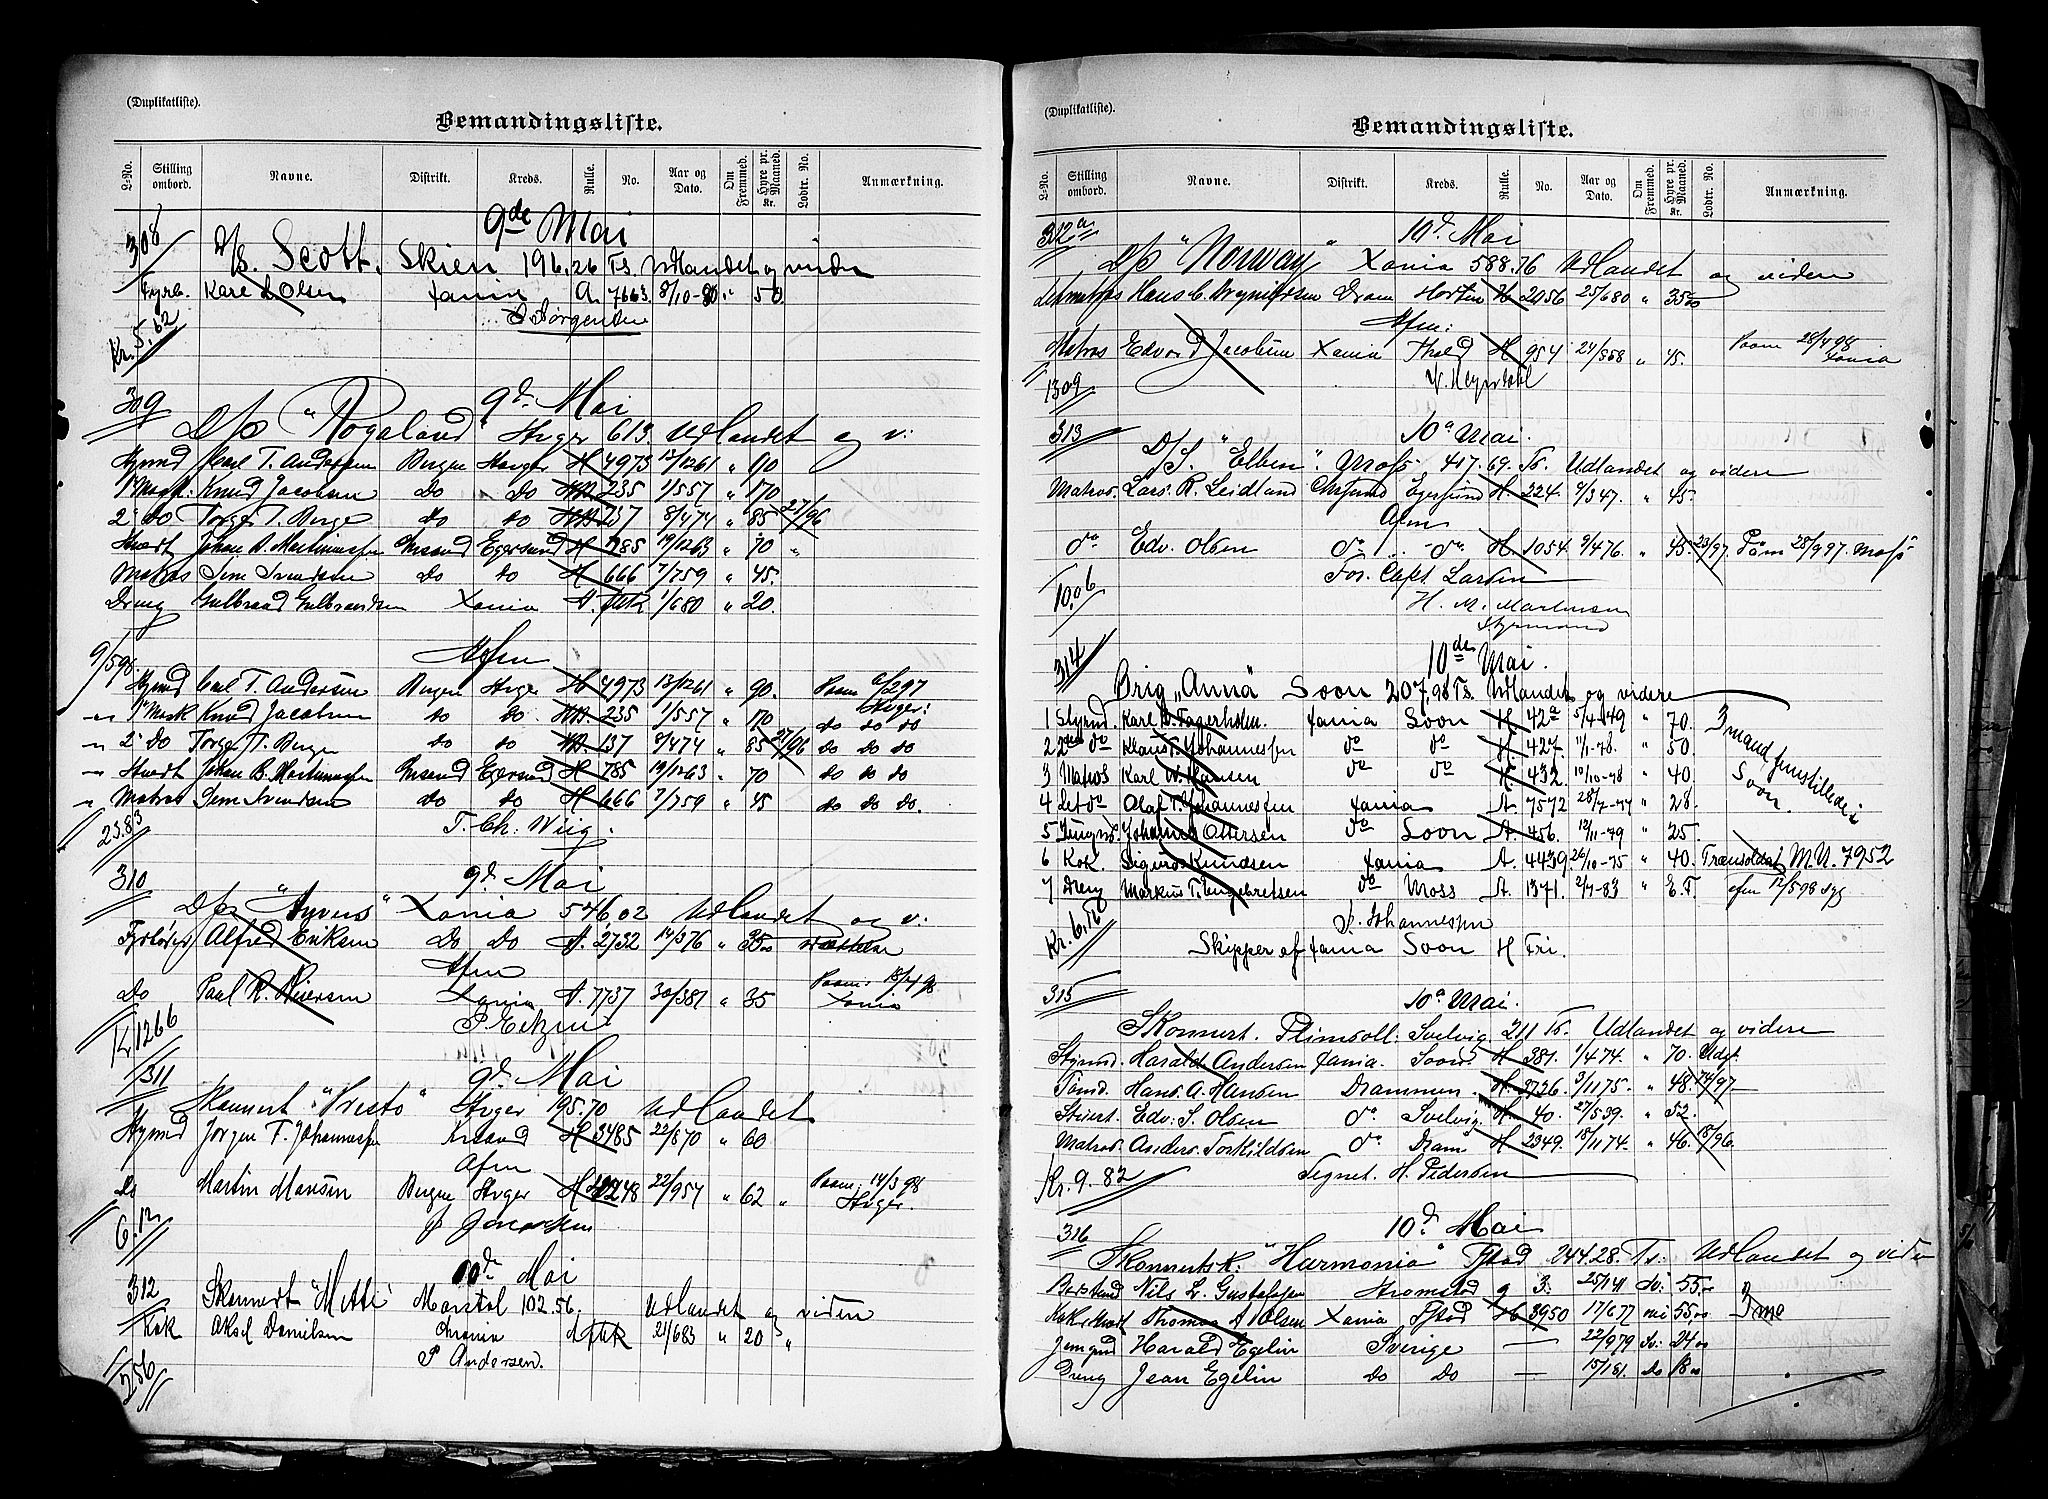 (Duplikatliste).
Bemandingsliste.
L-No. Stilling ombord. Navne. Distrikt. Kreds. Rulle. No. Aar og Dato. Om Fremmed. Hyre pr. Maaned. Kr. Lodtr. No. Anmærkning.
9de Mai
308
D/S. Scott. Skien 196.26 Ts. Udlandet og videre
Fyrb. Karl Olsen Xania A. 7663 8/10-80 " 50
Kr. 5.62
309
9d. Mai
D/S "Rogaland" Stvger 613. Udlandet og v:
Stymd Carl T. Andersen Bergen Stvger H 4973 13/1261 " 90
1 Mask. Knud Jacobsen Do Do 235 1/557 " 170
2 Do Torger T. Berge do do 137 8/474 " 85 27/96
Stuert Johan B. Martinussen Egersund H 785 19/1263 " 70 "
Matros Sem Svendsen Do do H 666 7/759 " 45.
Dreng Gulbrand Gulbrandsen Xania A. 1/680 " 20.
9/598.
Afm
Stymd Carl T. Andersen Bergen Stvger H 4973 13/1261 " 90. Paam /297 Stvger:
1 Mask Knud Jacobsen do do. 235 1/557 " 170 do do do
2 Do Torger T. Berge do do 137 8/474 " 85 27/96 do do do
Stuert Johan B. Martinussen Egersund H 785 19/1263 " 70 do do do
Matros Sem Svendsen do do H 666 7/759 " 45 do do do.
T. Ch. Wiig.
23.83
310
9d. Mai
D/S Xania 546.02 Udlandet og v:
Fyrbøder Alfred Eriksen Do Do A. 2732 14/376 " 35.00
Afm
Do Paul R. Xania A. 7737 30/381 " 35 Paam: 18/498 Xania
Kr 1266
311
9d. Mai
Skonnert "Presto" Stvger 195.70 Udlandet
Stymd Jørgen T. Johannessen H 3485 22/870 " 60
Afm
Do Martin Monsen Bergen Stvger H 1248 22/954 " 62 " Paam: 14/398 Stvger.
6.12
312
10de Mai
Skonnert "Mette" Marstal 102.56. Udlandet og videre
Kok Aksel Danielsen 21/683 " 20 "
P Andersen.
2.56
(Duplikatliste).
Bemandingsliste.
L-No. Stilling ombord. Navne. Distrikt. Kreds. Rulle. No. Aar og Dato. Om Fremmed. Hyre pr. Maaned. Kr. Lodtr. No. Anmærkning.
312a
10d. Mai
D/S "Norway" Xania 588.76 Udlandet og videre
Letmatros Hans C. Brynildsen Dram Horten H 2056 25/680 " 35.00
Afm:
Matros Edvard Jacobsen Xania Thold H 954 24/858 " 45. Paam 28/498 Xania
1309
313
10d Mai.
D/S. "Elben". Moss. 417.69. Ts. Udlandet og videre
Matros. Lars R. Leidland Egersund H 224. 9/347. " 45.
Afm
do Edv. Olsen do do. H. 1054. 9/476. " 45. 23/97. Påm 28/997. Moss
For. Capt. Larsen
10.06
H. M. Martinsen
Styrmand
314
10de Mai.
Brig "Anna" Soon 207,98 Ts. Udlandet og videre
1 Styrmd. Karl Fagerholm. Xania Soon H 42a 5/4-49 " 70.
2 2den do Klaus T. Johannessen do do H 427. 11/1-78. " 50.
3 Matros Karl W. Hansen do do H 432. 10/10-78 " 40.
4 Let do Olaf T. Johannessen Xania A. 7572 28/7-77 " 28.
3 mand fremstillede i Soon.
5 Jungm. Johannes Ottersen do Soon A. 456. 12/11-79 " 25.
6 Kok. Sigurd Knudsen Xania A. 4439. 26/10-75 " 40. Trænsoldat M.N. 7952
7 Dreng Markus T. Engebretsen do Moss A. 1371. 2/7-83 " E.F. afm 12/598 syg
Kr. 6.76
Johannessen
Skipper af Xania Soon H Fri.
315
10d Mai.
Skonnert. Plimsoll. Svelvig. 211 Ts. Udlandet og videre
Stymd. Harald Andersen Xania. Soon H 381. 1/474. " 70. Udst.
Tømd. Hans A. Hansen Drammen. H. 3726. 3/1175. " 48. 74/97
Stuert. Edv. S. Olsen do Svelvig. H 40. 27/539. " 52.
Matros. Anders. Torkildsen do Dram H 2349. 18/1174. " 46. 18/96.
Kr. 9.82
Tegnet. H. Pedersen
316
10d. Mai
Skonnertsk. "Harmonia" Fstad 244.28. Ts: Udlandet og videre
Nils L. Gustafsen Strømstad g 3. 25/141 55.00
Thomas A Olsen Xania Fstad H 3950 17/677 55.00
Jungmd Harald Egelin Sverige — 22/979 Sv: 24.00
Dreng Jean Egelin do do — 15/181. Do 18.00